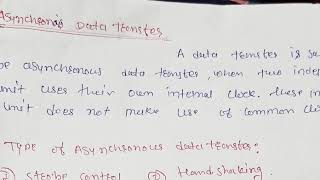 Asynchronous Data Transfer
A data transfer is sa
be asynchronous data transfer, when two inde
unit uses their own internal clock. these
unit does not make use of common clo
Type of Asynchronous data transfer:
① Strobe control ② Hand shaking.